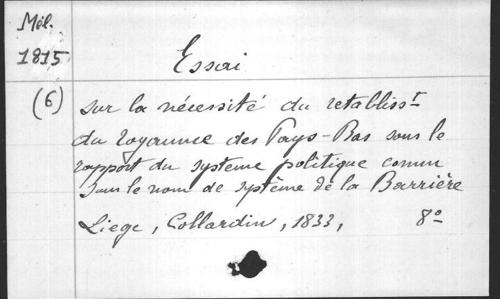 Mél.
1815
(6)
Essai
sur la nécessité du retablisst
du royaume des Pays-Bas sous le
rapport du systeme politique connu
sous le nom de système de la Barrière
Liege, Collardin, 1833, 8o